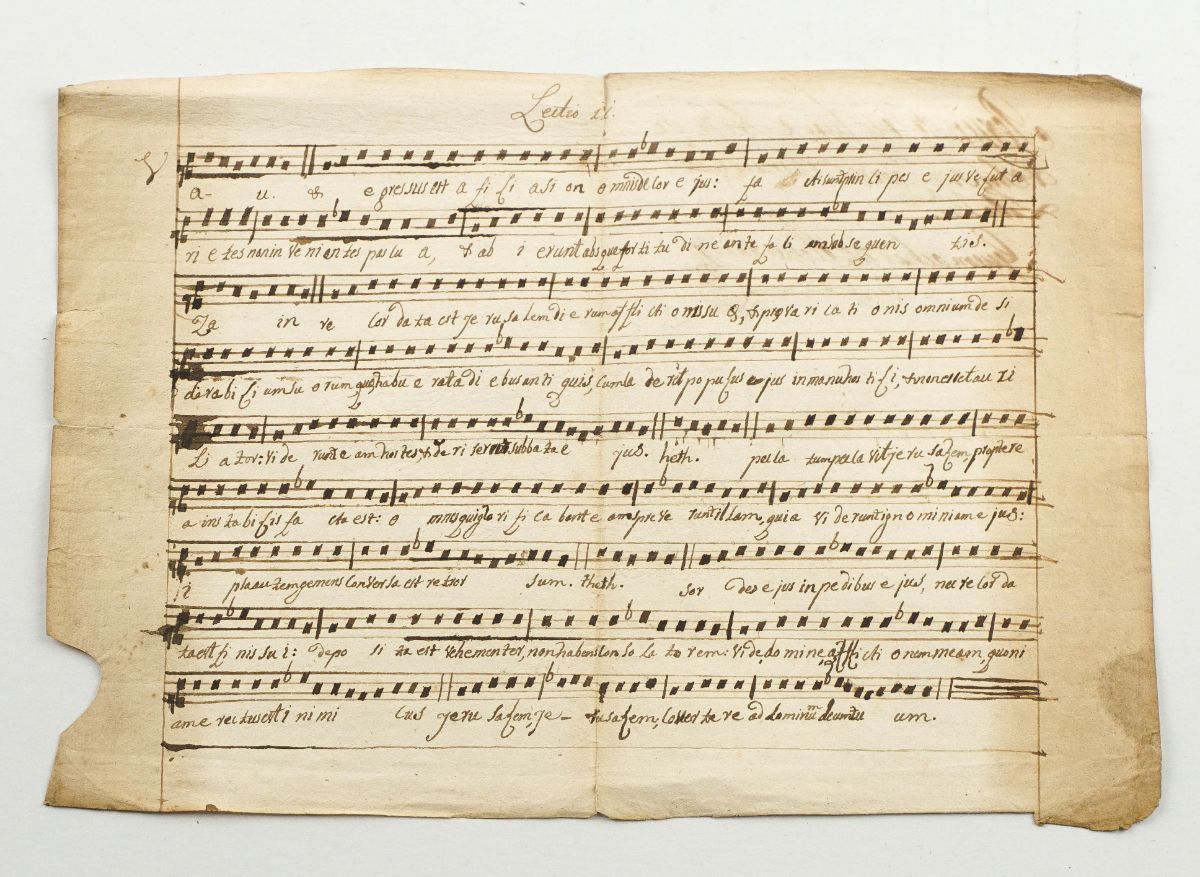 Lectio ii.
V a - u. & e gressus est a fi li a si on o mnis de cor e jus: fa cti sunt prin ci pes e jus ve lut a
ri e tes non in ve ni en tes pas cu a, & ab i e runt abs que for ti tu di ne an te fa ci em sub se quen tis.
Za in re cor da ta est je ru sa lem di e rum af fli cti o nis su æ, & præ va ri ca ti o nis omnium de si
de ra bi li um su o rum quæ habu e rat a di e bus an ti quis, cum ca de ret po pu lus e jus in manu hos ti li, & non esset au xi
li a tor: vi de runt e am hos tes, & de ri se runt sabba ta e jus. heth. pecca tum pecca vit je ru sa lem, propte re
a ins ta bi lis fa cta est: o mnes qui glo ri fi ca bant e am spre ve runt il lam, qui a vi de runt igno mini am e jus:
i psa au tem gemens conver sa est re tror sum. theth. sor des e jus in pe di bus e jus, nec re cor da
ta est fi nis su i: depo si ta est vehementer, non habens con so la to rem: vi de, do mi ne, af fli cti o nem me am, quoni
am e rec tus est i ni mi cus jeru sa lem, je - ru sa lem, conver te re ad dominũ deum tu um.